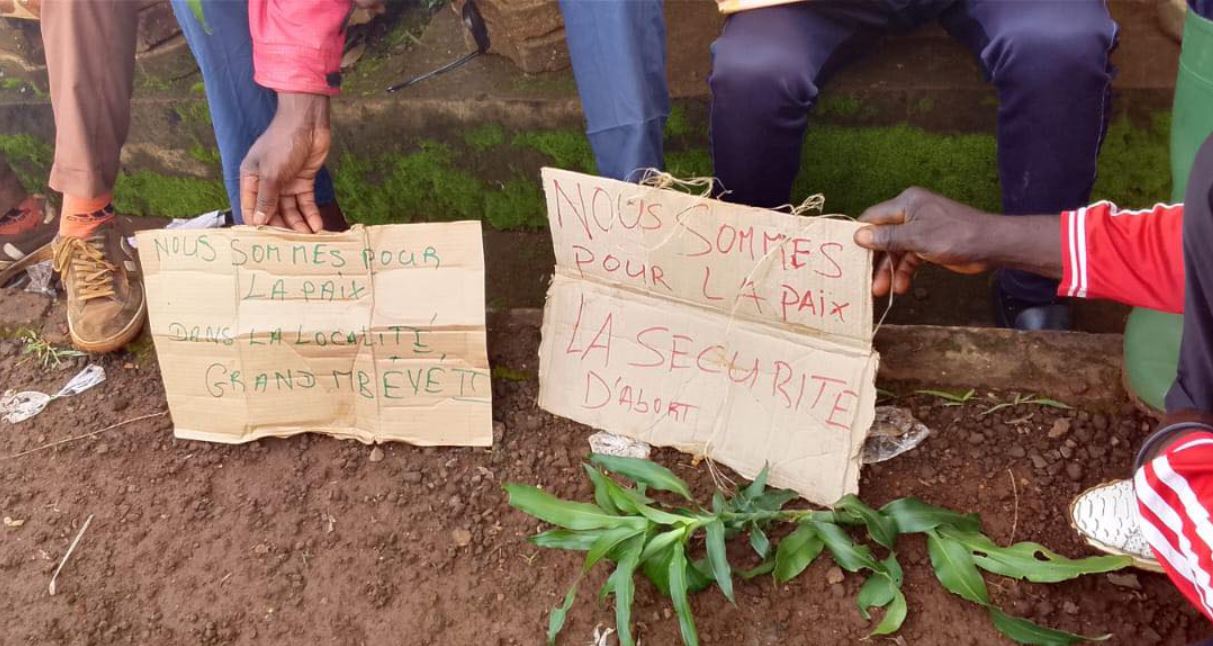 NOUS SOMMES POUR
LA PAIX
DANS LA LOCALITÉ
GRAND MBÉVÉ II
NOUS SOMMES
POUR LA PAIX
LA SECURITE
D'ABORT